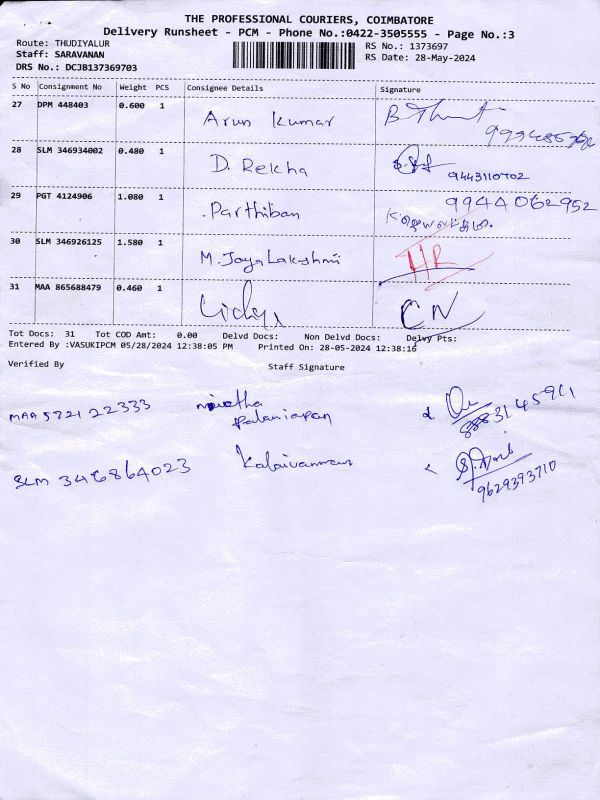 THE PROFESSIONAL COURIERS, COIMBATORE
Delivery Runsheet - PCM - Phone No.:0422-3505555 - Page No.:3
Route: THUDIYALUR
RS No.: 1373697
Staff: SARAVANAN
RS Date: 28-May-2024
DRS No.: DCJB137369703
S No Consignment No Weight PCS Consignee Details Signature
27 DPM 448403 0.600 1 Arun Kumar
28 SLM 346934002 0.480 1 D. Rekha
9443110702
29 PGT 4124906 1.080 1 Parthiban 9944062952
30 SLM 346926125 1.580 1 M. JayaLakshmi HR
31 MAA 865688479 0.460 1 CN
Tot Docs: 31 Tot COD Amt: 0.00 Delvd Docs: Non Delvd Docs: Delvy Pts:
Entered By :VASUKIPCM 05/28/2024 12:38:05 PM Printed On: 28-05-2024 12:38:16
Verified By Staff Signature
palaniapan
SLM 346864023
9629393710